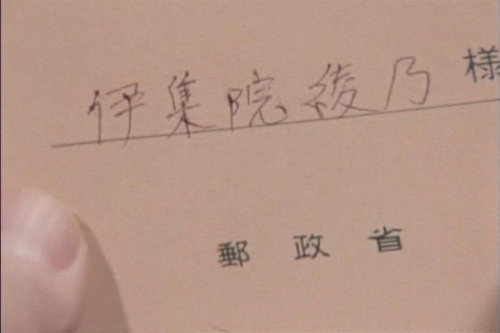 伊集院綾乃様
郵政省